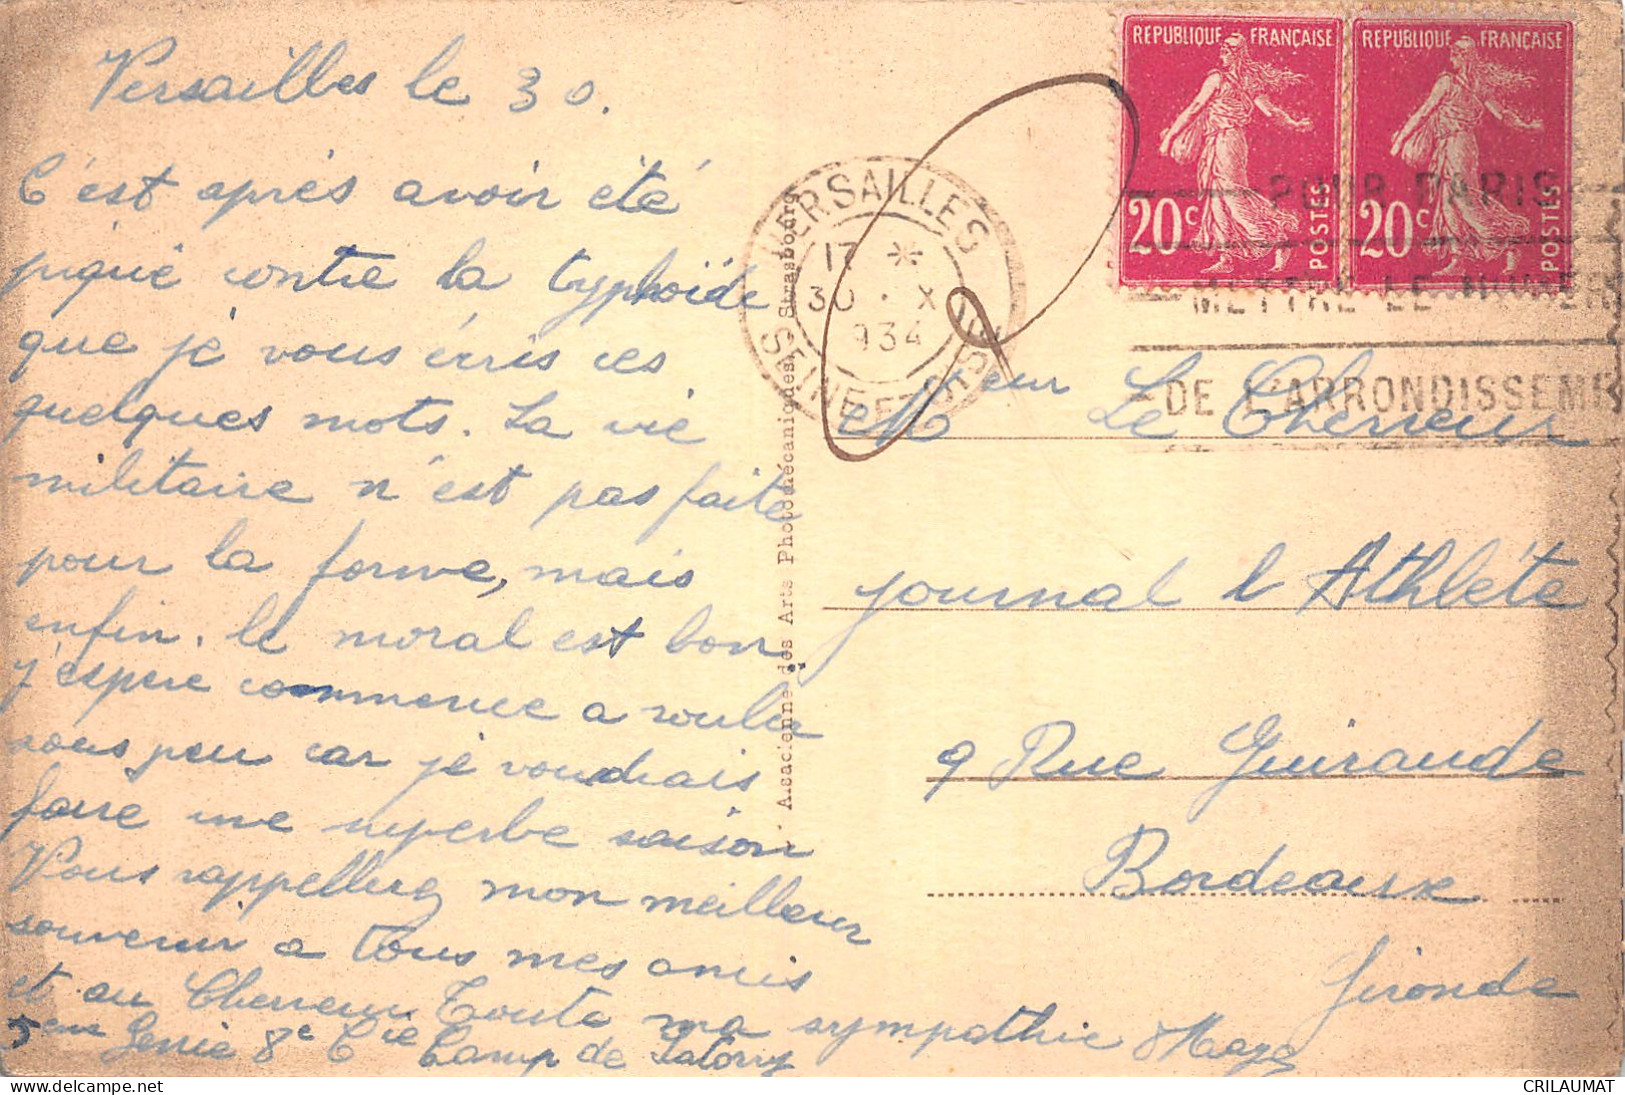 Versailles le 30.
C'est après avoir été
piqué contre la typhoïde
que je vous écris ces
quelques mots. La vie
militaire n'est pas faite
pour la forme, mais
enfin. le moral est bon,
j'espère commence a roulre
sous peu car je voudrais
faire une superbe saison
Vous rappellerez mon meilleur
souvenir a tous mes amis
et au Cherreur Toute ma sympathie
5eme Genie 8e Cie Camp de Satory
REPUBLIQUE FRANÇAISE
20c POSTES
REPUBLIQUE FRANÇAISE
20c POSTES
VERSAILLES
17 *
30 . X
1934
SEINE ET OISE
POUR PARIS
METTRE LE NUMERO
DE L'ARRONDISSEMENT
Alsacienne des Arts Photomécaniques Strasbourg
Meur Le Cherreur
journal l'Athlète
9 Rue Guiraude
Bordeaux
Gironde
CRILAUMAT